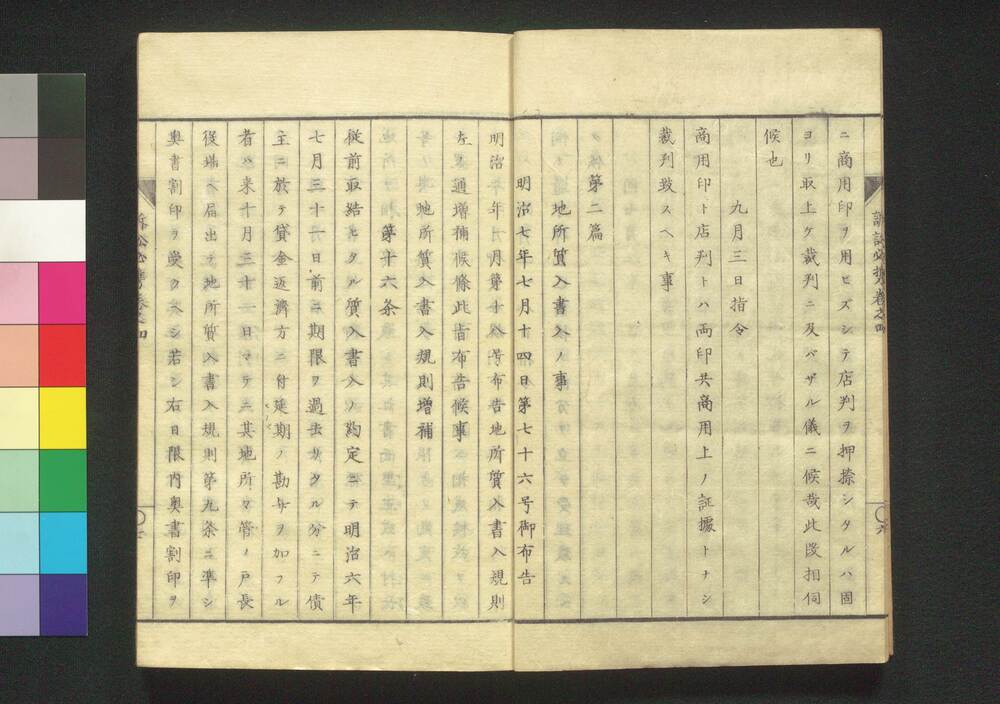 ニ商用印ヲ用ヒズシテ店判ヲ押捺シタルハ固
ヨリ取上ケ裁判ニ及バザル儀ニ候哉此段相伺
候也
九月三日指令
商用印ト店判トハ両印共商用上ノ証拠トナシ
裁判致スヘキ事
第二篇
地所質入書入ノ事
明治七年七月十四日第七十六号御布告
明治六年一月第十八号布告地所質入書入規則
左ノ通増補候條此旨布告候事
地所質入書入規則増補
第十六条
従前取結ヒタル質入書入ノ約定ニテ明治六年
七月三十一日前ニ期限ヲ過去リタル分ニテ債
主ニ於テ貸金返済方ニ付延期ノ勘弁ヲ加フル
者ハ来十月三十一日マテニ其地所ヲ管ノ戸長
役場ヘ届出テ地所質入書入規則第九条ニ準シ
奥書割印ヲ受クヘシ若シ右日限内奥書割印ヲ
訴訟必携巻之四